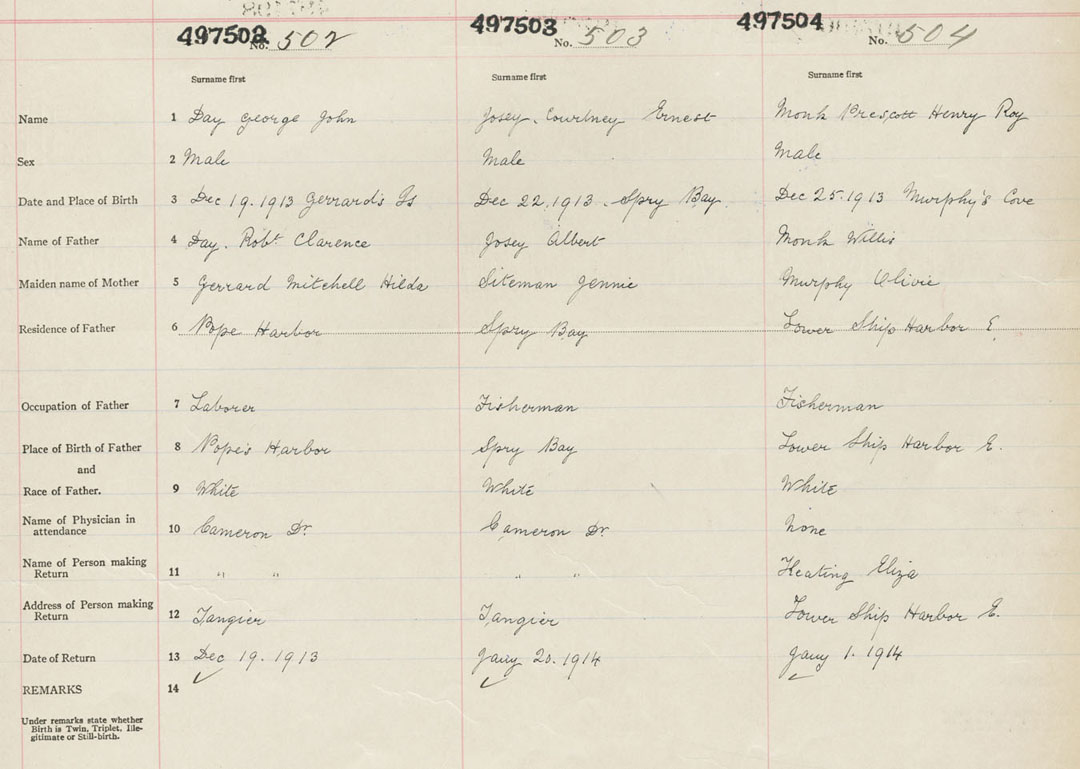 497502 No. 502 497503 No. 503 497504 No. 504
Surname first Surname first Surname first
Name 1 Day George John Josey, Courtney Ernest Monk Prescott Henry Roy
Sex 2 Male Male Male
Date and Place of Birth 3 Dec 19. 1913 Gerrard's Is Dec 22. 1913. Spry Bay Dec 25. 1913 Murphy's Cove
Name of Father 4 Day. Robt Clarence Josey Albert Monk Willis
Maiden name of Mother 5 Gerrard Mitchell Hilda Siteman Jennie Murphy Olivie
Residence of Father 6 Pope Harbor Spry Bay Lower Ship Harbor E.
Occupation of Father 7 Laborer Fisherman Fisherman
Place of Birth of Father 8 Pope's Harbor Spry Bay Lower Ship Harbor E.
and
Race of Father. 9 White White White
Name of Physician in
attendance 10 Cameron Dr. Cameron Dr. None
Name of Person making
Return 11 " " " " Keating Eliza
Address of Person making
Return 12 Tangier Tangier Lower Ship Harbor E.
Date of Return 13 Dec 19. 1913 Jany 20. 1914 Jany 1. 1914
REMARKS 14
Under remarks state whether
Birth is Twin, Triplet, Ille-
gitimate or Still-birth.